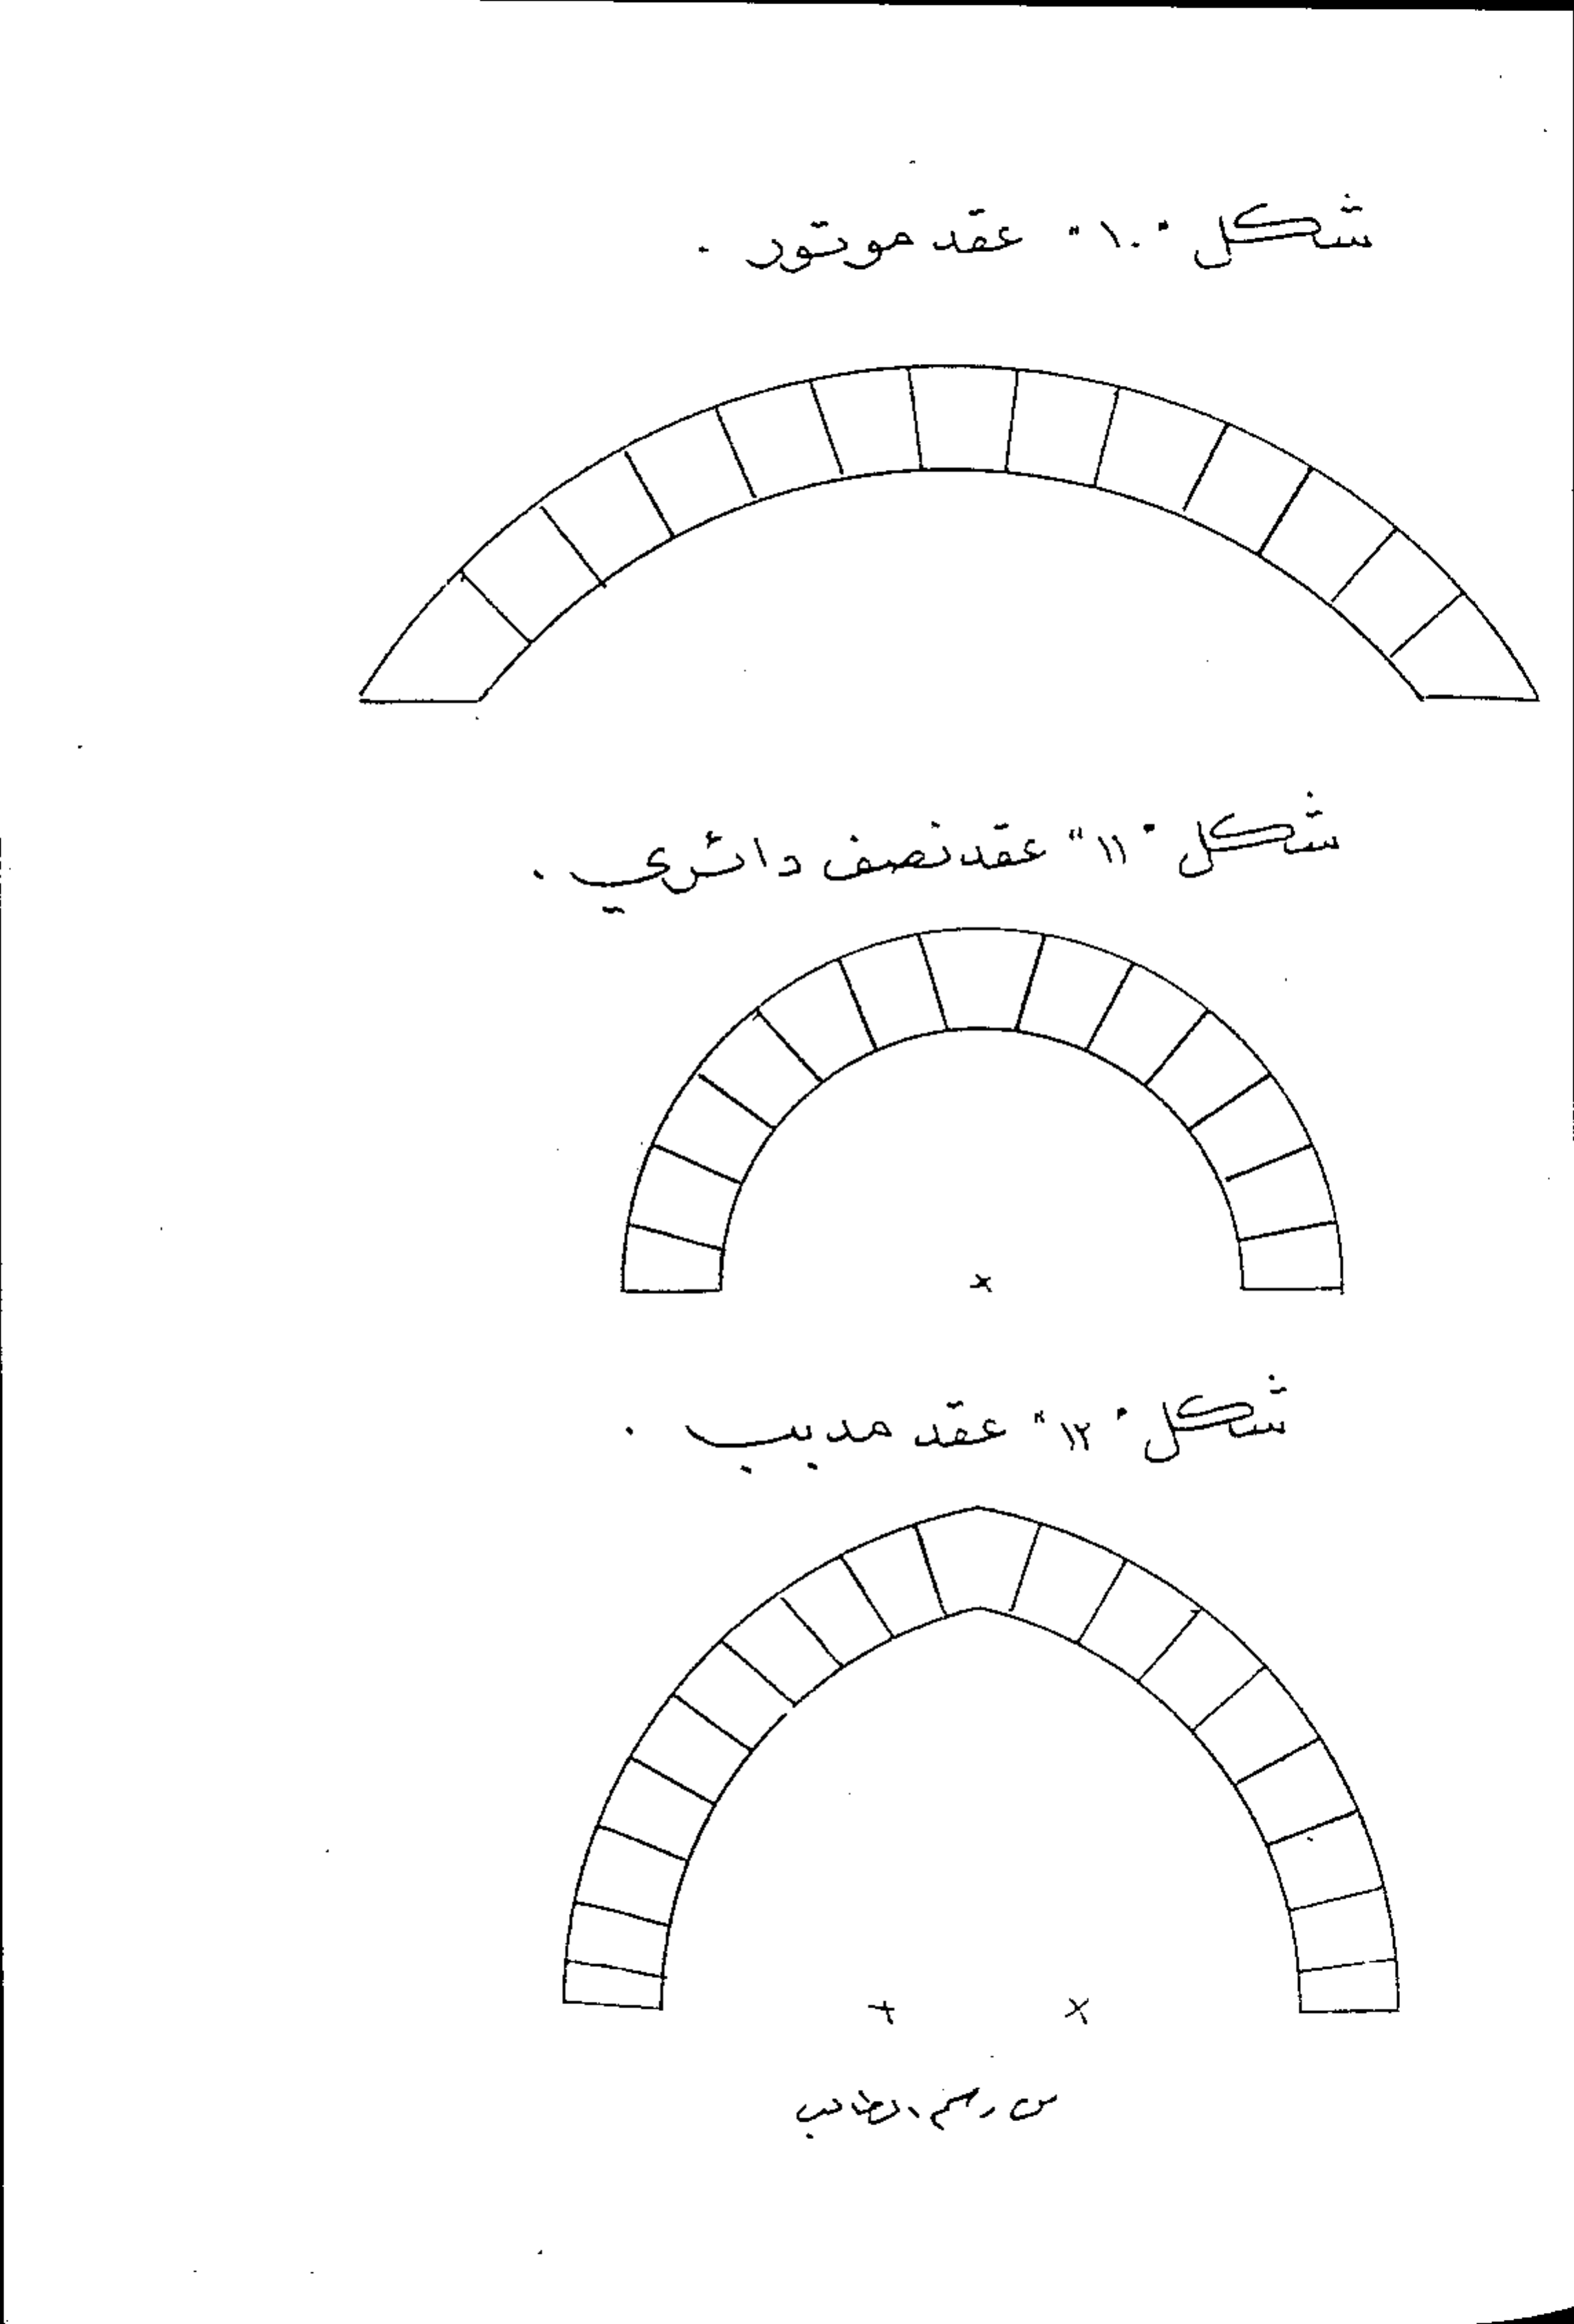 شكل "١٠" عقد موتور .
شكل "١١" عقد نصف دائري .
شكل "١٢" عقد مدبب .
من رسم الطالب